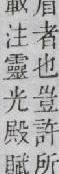 眉者也豈許所
載注靈光殿賦